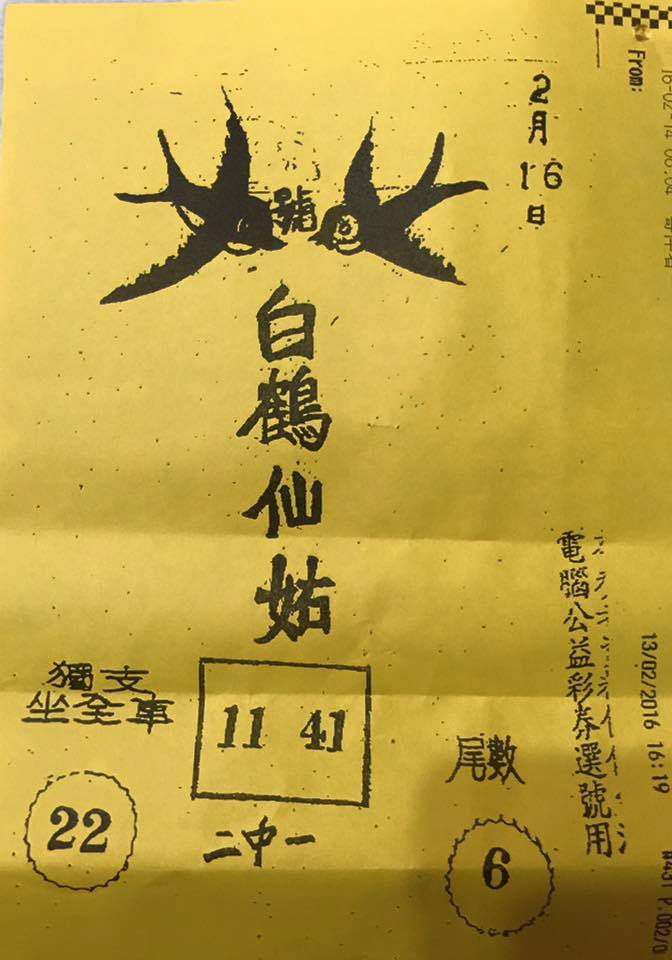 From:
2月16日
號
白鶴仙姑
獨支
坐全車
22
11 41
二中一
尾數
6
電腦公益彩券選號用
13/02/2016 16:19